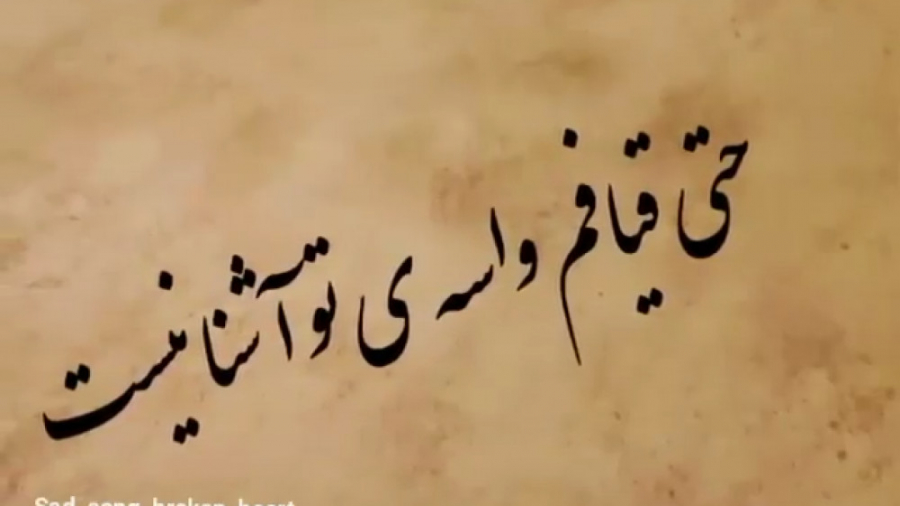 حتی قیافم واسه ی تو آشنا نیست
Sad song broken heart